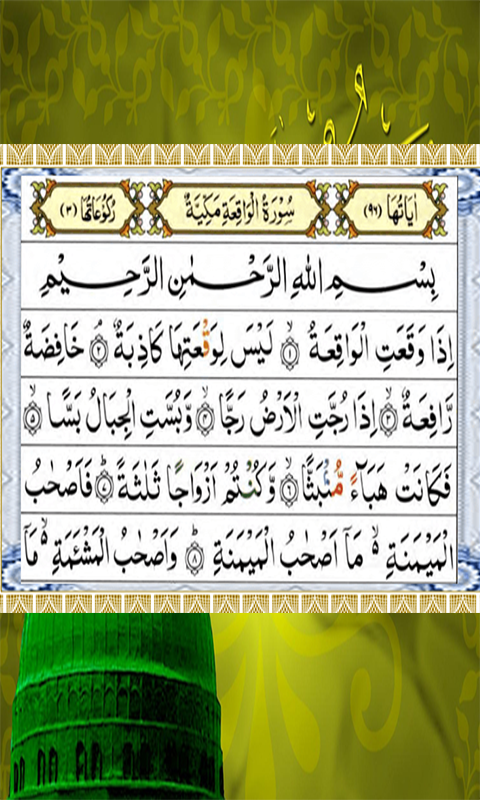 اٰيَاتُهَا (٩٦) سُوْرَةُ الْوَاقِعَةِ مَكِّيَّةٌ رُكُوْعَاتُهَا (٣)
بِسْمِ اللهِ الرَّحْمٰنِ الرَّحِيْمِ
اِذَا وَقَعَتِ الْوَاقِعَةُ ۙ ﴿١﴾ لَيْسَ لِوَقْعَتِهَا كَاذِبَةٌ ۘ ﴿٢﴾ خَافِضَةٌ
رَّافِعَةٌ ۙ ﴿٣﴾ اِذَا رُجَّتِ الْاَرْضُ رَجًّا ۙ ﴿٤﴾ وَّبُسَّتِ الْجِبَالُ بَسًّا ۙ ﴿٥﴾
فَكَانَتْ هَبَآءً مُّنْۢبَثًّا ۙ ﴿٦﴾ وَّكُنْتُمْ اَزْوَاجًا ثَلٰثَةً ؕ ﴿٧﴾ فَاَصْحٰبُ
الْمَيْمَنَةِ ۙ مَاۤ اَصْحٰبُ الْمَيْمَنَةِ ؕ ﴿٨﴾ وَاَصْحٰبُ الْمَشْـَٔمَةِ ۙ مَاۤ